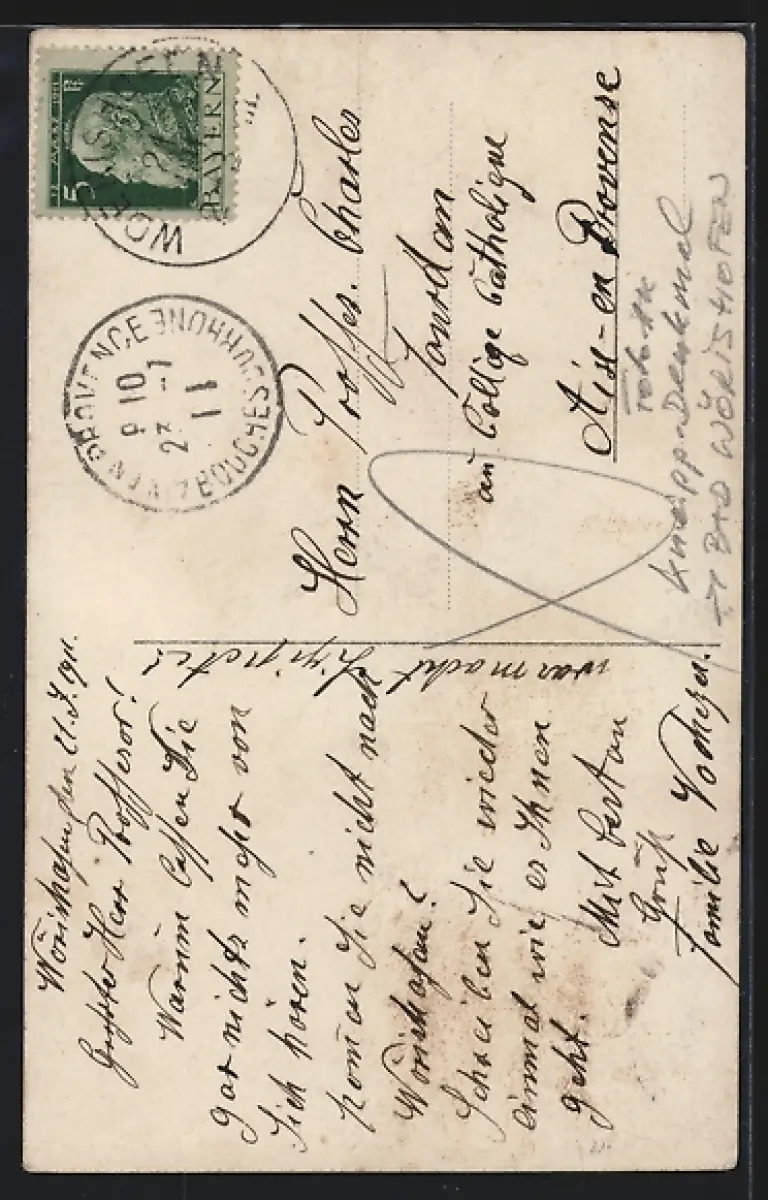 Wörishofen den 21.7.1911.
Geehrter Herr Proffesor!
Warum lassen Sie
gar nichts mehr von
Sich hören.
kom̄en Sie nicht nach
Wörishofen?
Schreiben Sie wieder
einmal wie es Ihnen
geht.
Mit besten
Gruß
Familie
was macht
Herrn Proffes. Charles
Jourdan
au Collège Catholique
Aix-en Provense
Kneipp-Denkmal
BAD WÖRISHOFEN
5 Pf
BAYERN
WOERISHOFEN
PROVENCE
BOUCHES DU RHONE
9 10
23 -7
11